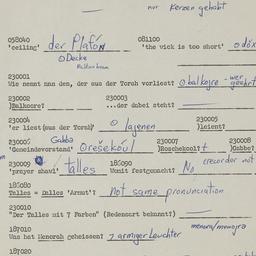 nur Kerzen gehabt
058040 081100
'ceiling' der Plafón 'the vick is too short' o dóx
o Decke
230001
Wie nennt man den, der aus der Torah vorliest? o balkojre - wer geehrt
230002 230003
]Balkoore? ...der dabei steht?
230004 230005
'er liest(aus der Torah)' o lajenen ]Leient?
230006 Gabba 230007 230008
'Gemeindevorstand' Orešekóul ]Roschekool? t ]Gabbe?
230009 186090 (recorder not
'prayer shawl' talles Womit festgemacht? No
186080
Talles = Dalles 'Armut'? not same pronunciation
230010
"Der Talles mit 7 Farben" (Redensart bekannt?) -
187010 menora/menojra
Was hat Menorah geheissen? 7 armiger Leuchter
187020